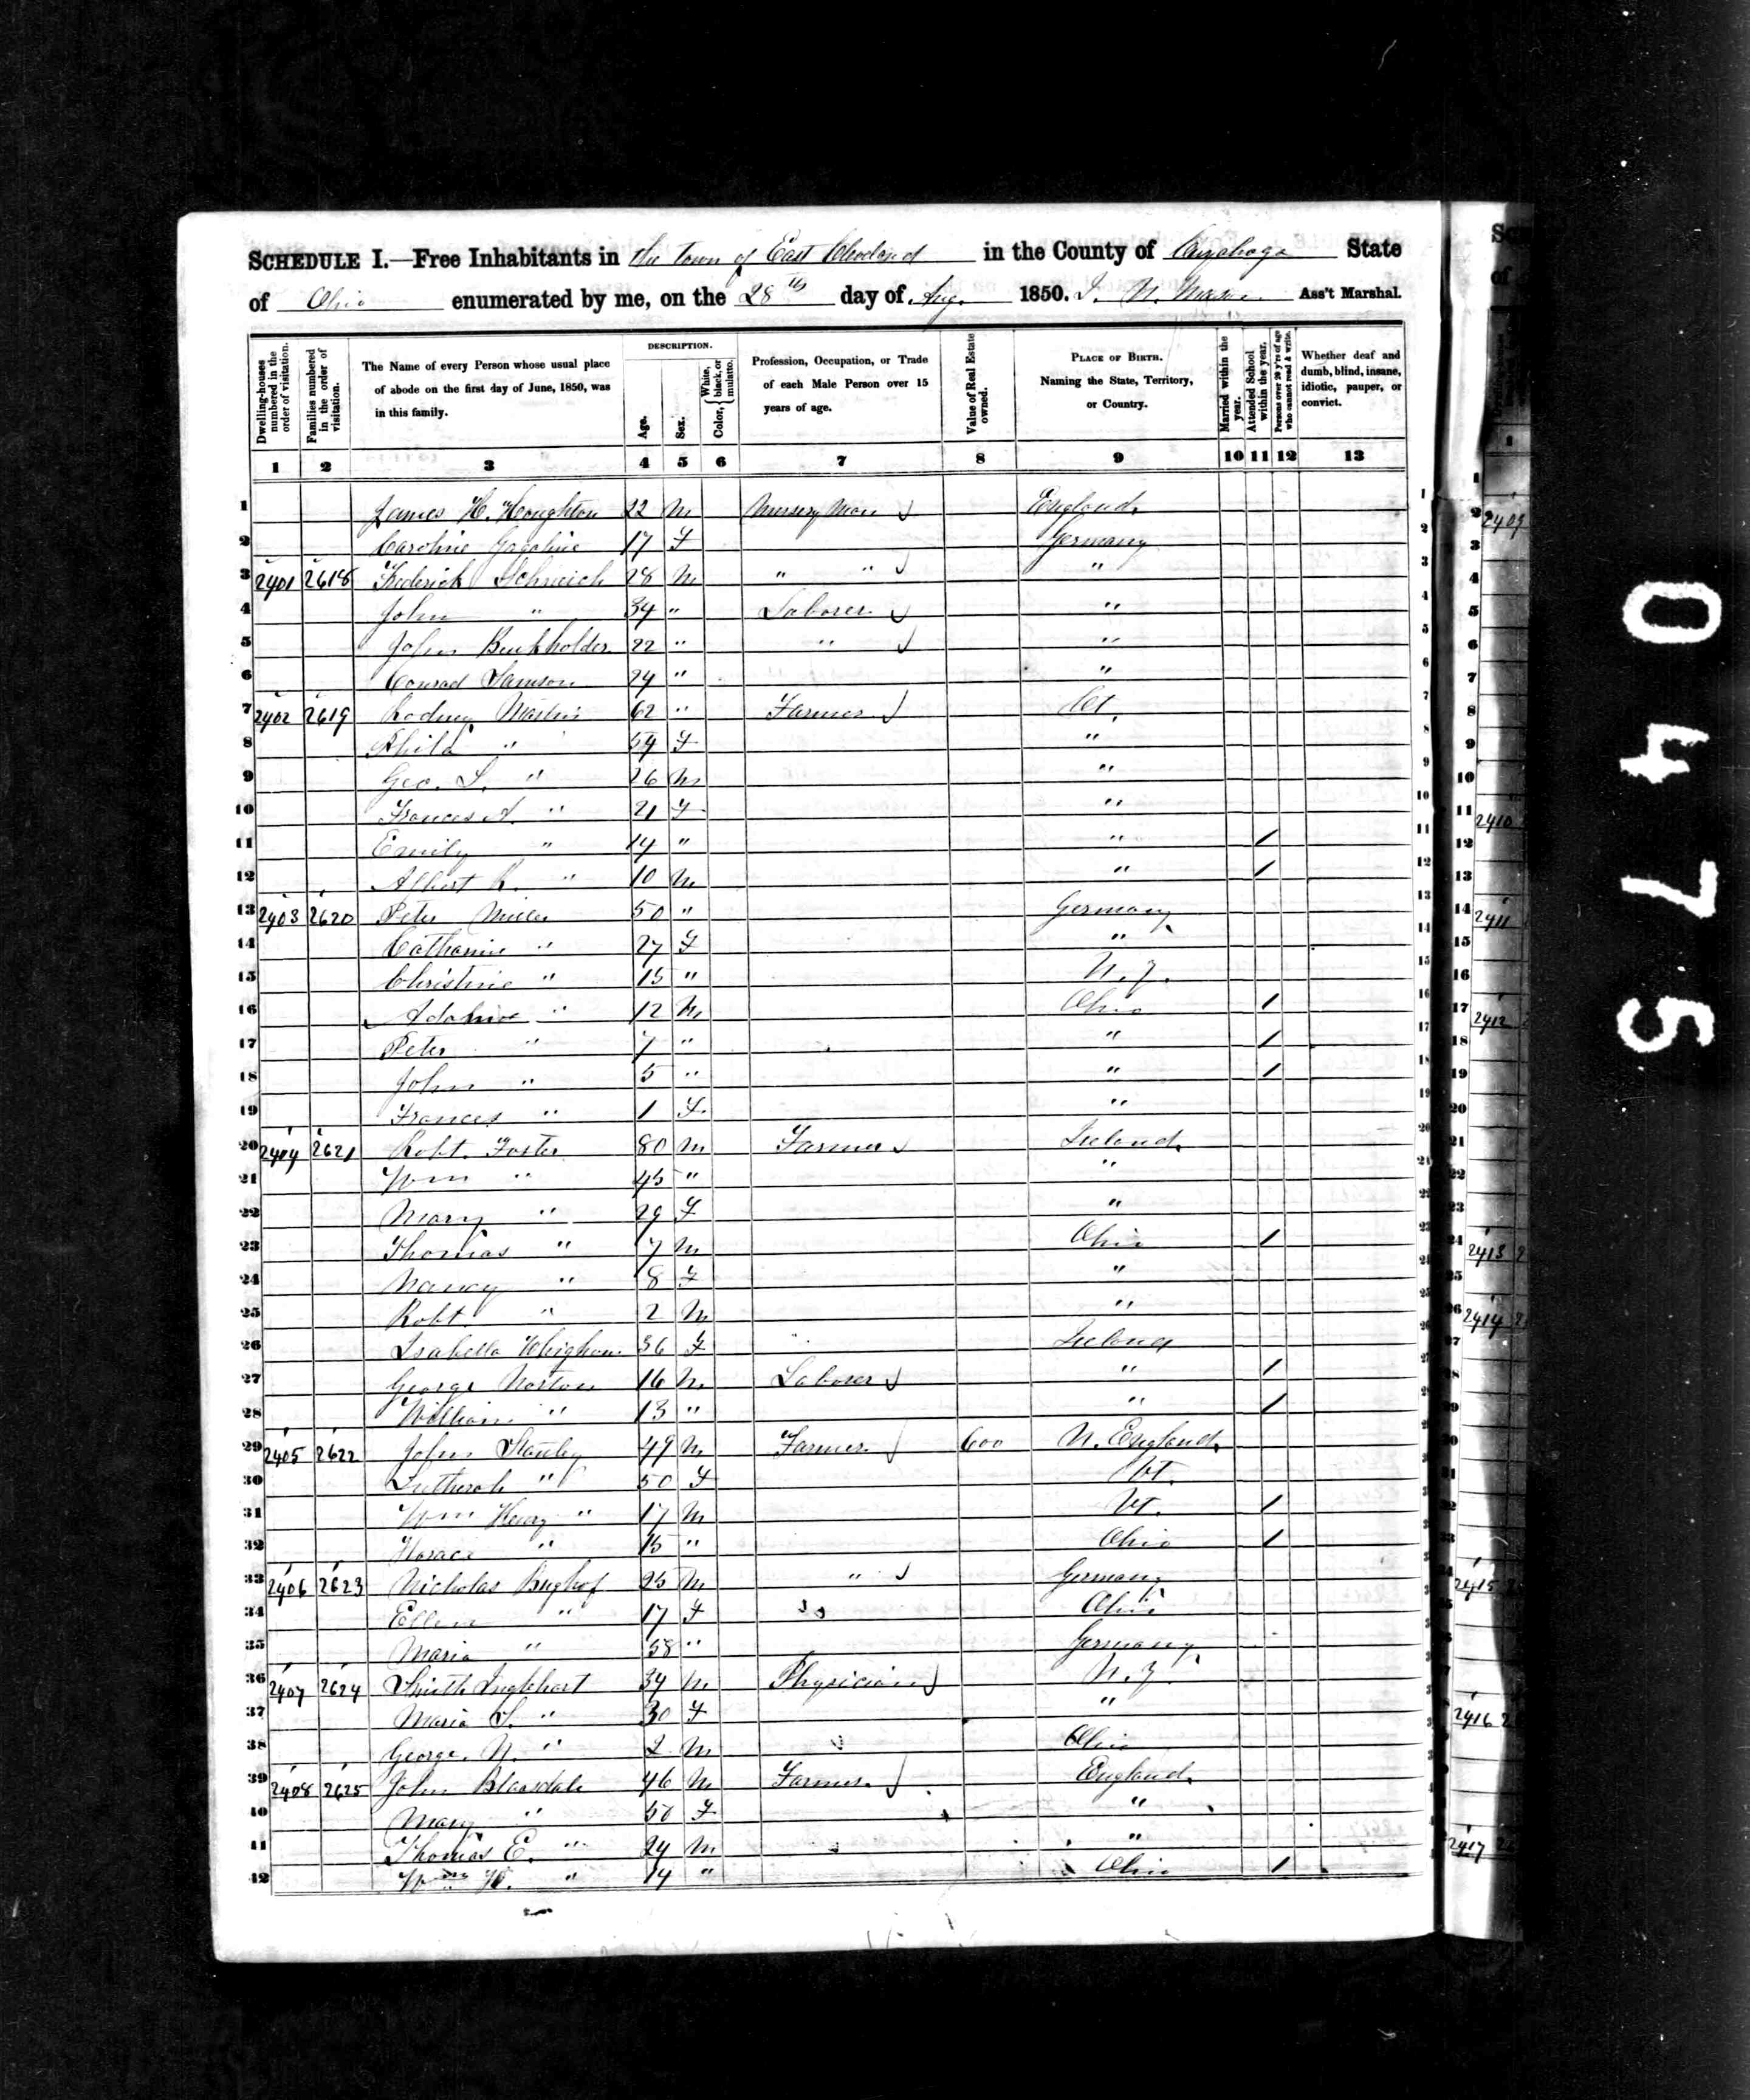 SCHEDULE I.—Free Inhabitants in the Town of East Cleveland in the County of Cuyahoga State
of Ohio enumerated by me, on the 28th day of Aug. 1850. Ass't Marshal.
DESCRIPTION.
Dwelling-houses numbered in the order of visitation.
Families numbered in the order of visitation.
The Name of every Person whose usual place of abode on the first day of June, 1850, was in this family.
Age.
Sex.
Color, White, black, or mulatto.
Profession, Occupation, or Trade of each Male Person over 15 years of age.
Value of Real Estate owned.
PLACE OF BIRTH. Naming the State, Territory, or Country.
Married within the year.
Attended School within the year.
Persons over 20 y'rs of age who cannot read & write.
Whether deaf and dumb, blind, insane, idiotic, pauper, or convict.
1 2 3 4 5 6 7 8 9 10 11 12 13
1 James H. Houghton 22 M Nursery Man England. 1
2 Caroline 17 F Germany 2
3 2401 2618 Frederick 28 M " " " 3
4 John " 34 " Laborer " 4
5 John Burkholder 22 " " " 5
6 Conrad Samson 24 " " 6
7 2402 2619 Rodney 62 " Farmer Ct. 7
8 " 54 F " 8
9 Geo. S. " 26 M " 9
10 Frances A. " 21 F " 10
11 Emily " 14 " " / 11
12 Albert R. " 10 M " / 12
13 2403 2620 Peter Miller 50 " Germany 13
14 Catharine " 27 F " 14
15 Christine " 15 " N. Y. 15
16 " 12 M Ohio / 16
17 Peter " 7 " " / 17
18 John " 5 " " / 18
19 Frances " 1 F " 19
20 2404 2621 Robt. Foster 80 M Farmer Ireland. 20
21 Wm " 45 " " 21
22 Mary " 29 F " 22
23 Thomas " 7 M Ohio / 23
24 Nancy " 8 F "
25 Robt " 2 M "
26 Isabella Whigham 36 F Ireland
27 George Norton 16 M Laborer " /
28 William " 13 " " /
29 2405 2622 John Stanley 49 M Farmer 600 N. England.
30 " 50 F Vt.
31 Wm Henry " 17 M Vt. /
32 Horace " 15 " Ohio /
33 2406 2623 Nicholas 25 M " Germany
34 Ellen " 17 F Ohio
35 Maria " 58 " Germany
36 2407 2624 Smith Inglehart 34 M Physician N. Y.
37 Maria S. " 30 F "
38 George. N. " 2 M Ohio
39 2408 2625 John Bleasdale 46 M Farmer England.
40 Mary " 50 F "
41 Thomas E. " 24 M "
42 Wm H. " 14 " Ohio /
2409
2410
2411
2412
2413
2414
2415
2416
2417
0475